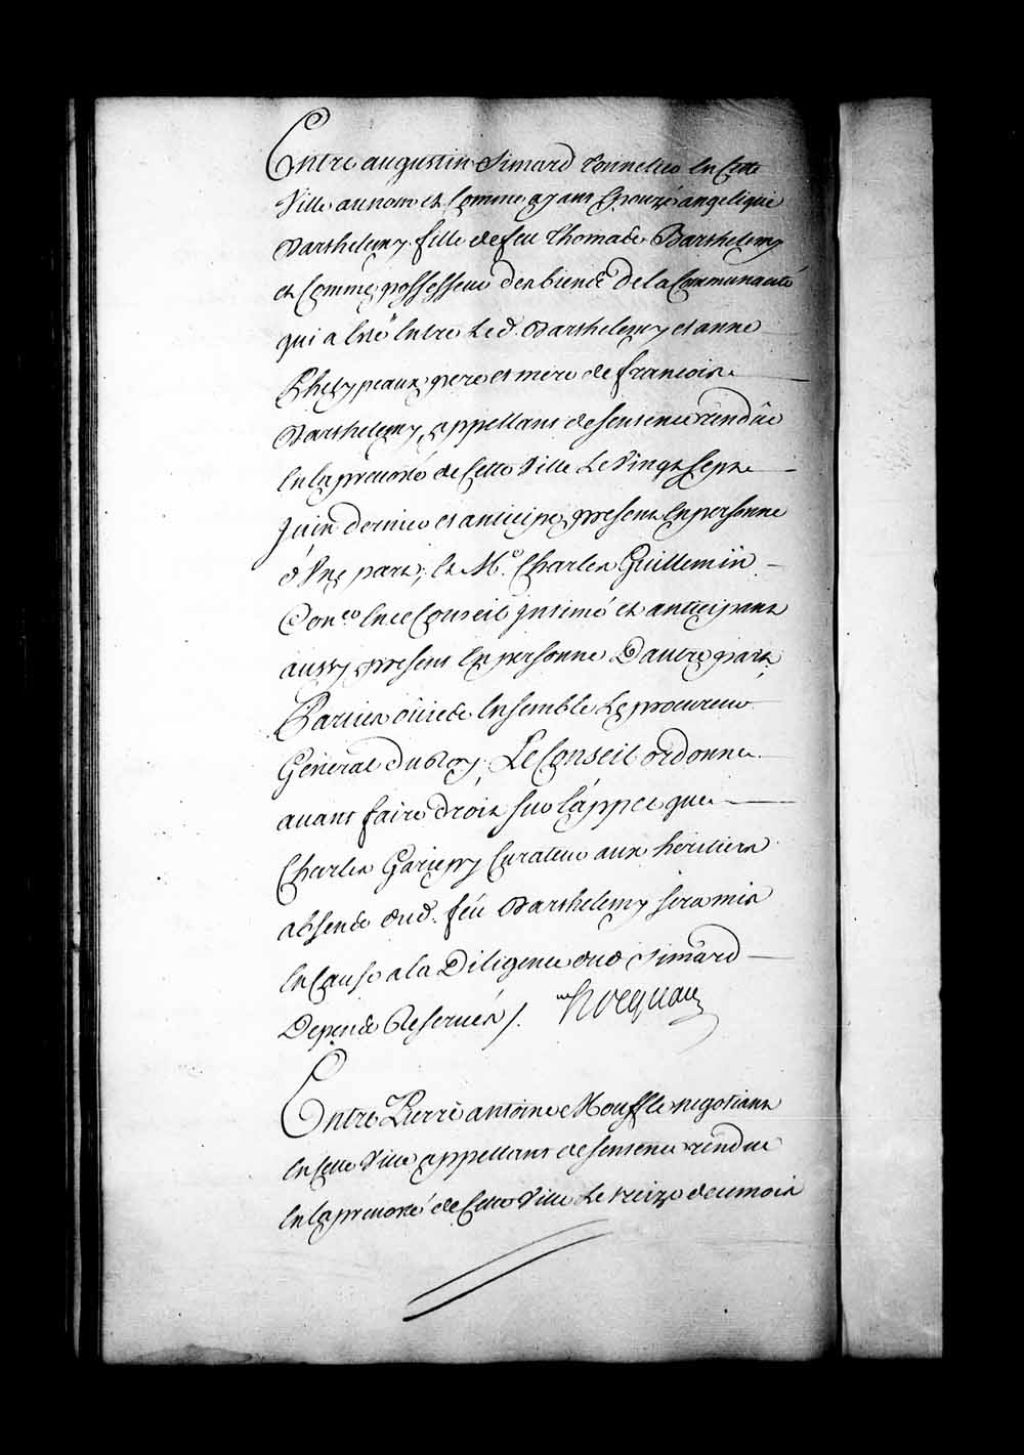 Entre augustin Simard Tonnelier en Cette
Ville au nom et Comme ayant Epouzé angelique
Barthelemy fille de feu Thomas Barthelemy
et Comme possesseur des biens de la Communauté
qui a Eté Entre Led. Barthelemy et anne
pere et mere de francoise
Barthelemy, appellant de sentence rendüe
En la prevosté de Cette Ville Le Vingt sept
Juin dernier et anticipé, present En personne
d'Une part; Et Me. Charles Guillemin
Coner. En ce Conseil Intimé et anticipant
aussy present En personne D'autre part;
Parties oüies Ensemble Le procureur
General du Roy, Le Conseil ordonne
avant faire droit sur l'appel que
Charles Gariepy Curateur aux heritiers
absents dud. feu Barthelemy sera mis
En Cause a la Diligence dud Simard
Depens Reservés /. Hocquart
Entre Pierre antoine Mouffle negotiant
En Cette Ville appellant de sentence rendue
En la prevosté de Cette Ville Le treize de ce mois